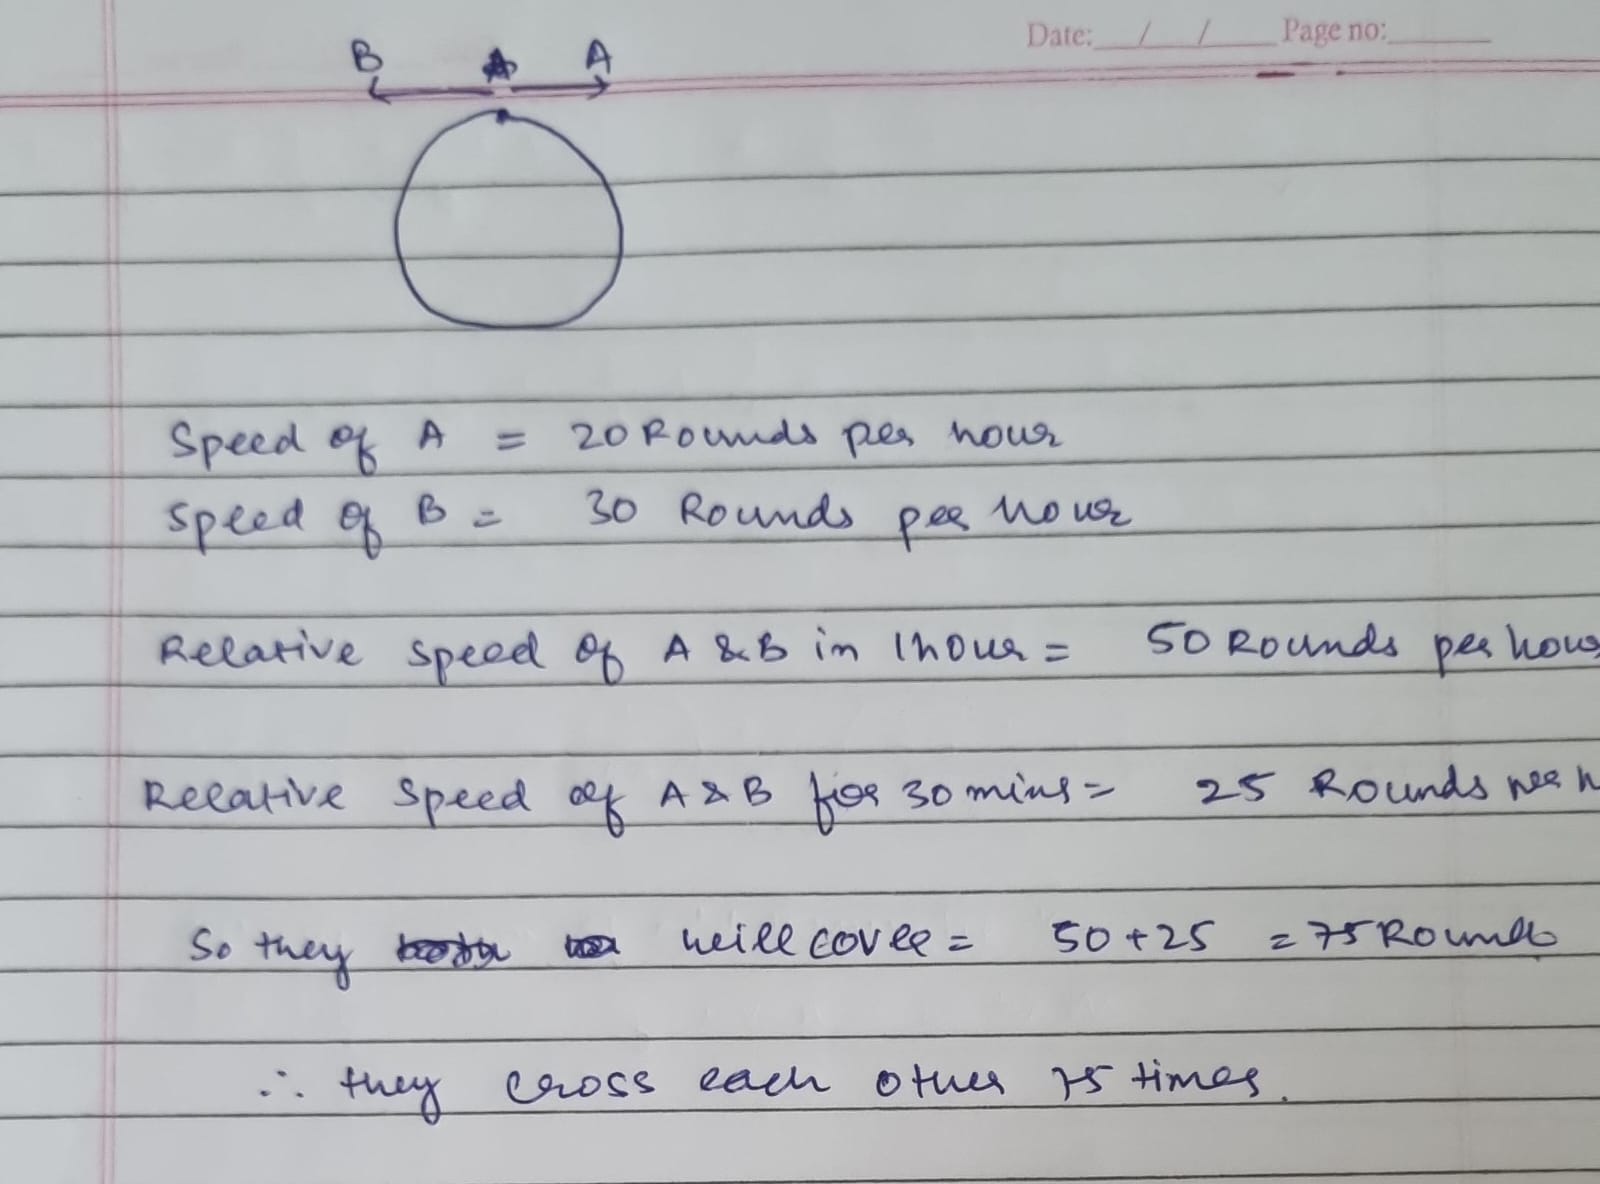 Date: / / Page no:
B A A
Speed of A = 20 Rounds per hour
Speed of B = 30 Rounds per hour
Relative speed of A & B in 1 hour = 50 Rounds per hour
Relative Speed of A & B for 30 mins = 25 Rounds per h
So they will cover = 50 + 25 = 75 Rounds
∴ they cross each other 75 times.